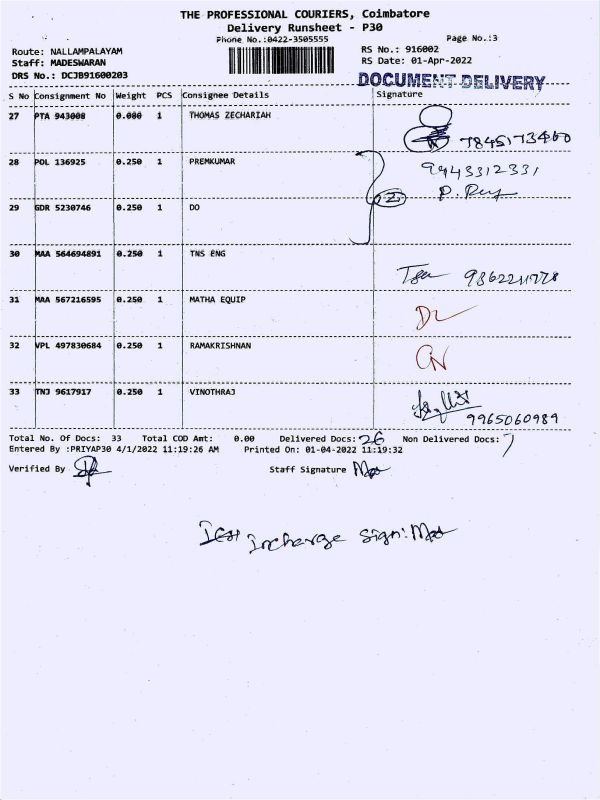 THE PROFESSIONAL COURIERS, Coimbatore
Delivery Runsheet - P30
Phone No.:0422-3505555
Page No.:3
Route: NALLAMPALAYAM
RS No.: 916002
Staff: MADESWARAN
RS Date: 01-Apr-2022
DRS No.: DCJB91600203
DOCUMENT DELIVERY
S No Consignment No Weight PCS Consignee Details Signature
27 PTA 943008 0.080 1 THOMAS ZECHARIAH
7845173460
28 POL 136925 0.250 1 PREMKUMAR 9943312331
2
29 GDR 5230746 0.250 1 DO
30 MAA 564694891 0.250 1 TNS ENG
31 MAA 567216595 0.250 1 MATHA EQUIP
DL
32 VPL 497830684 0.250 1 RAMAKRISHNAN
33 TNJ 9617917 0.250 1 VINOTHRAJ
9965060989
Total No. Of Docs: 33 Total COD Amt: 0.00 Delivered Docs: 26 Non Delivered Docs: 7
Entered By :PRIYAP30 4/1/2022 11:19:26 AM Printed On: 01-04-2022 11:19:32
Verified By Staff Signature
Incharge Sign: